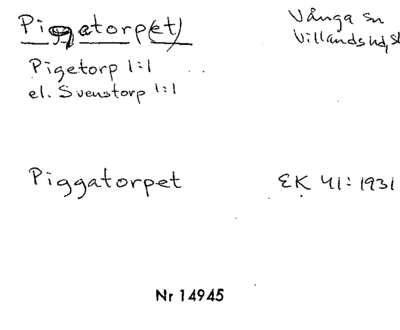 Piggatorp(et)
Vånga sn
Villands hd, Sk
Pigetorp 1:1
el. Svenstorp 1:1
Piggatorpet
EK 41: 1931
Nr 14945